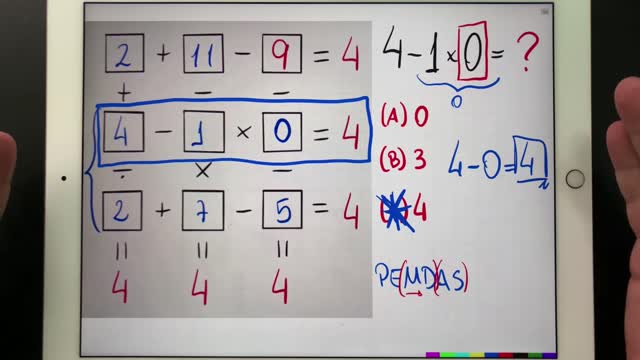 2 + 11 - 9 = 4
+ - -
4 - 1 × 0 = 4
÷ × -
2 + 7 - 5 = 4
= = =
4 4 4
4 - 1 × 0 = ?
0
(A) 0
(B) 3
4 - 0 = 4
4
PE(MD)(AS)